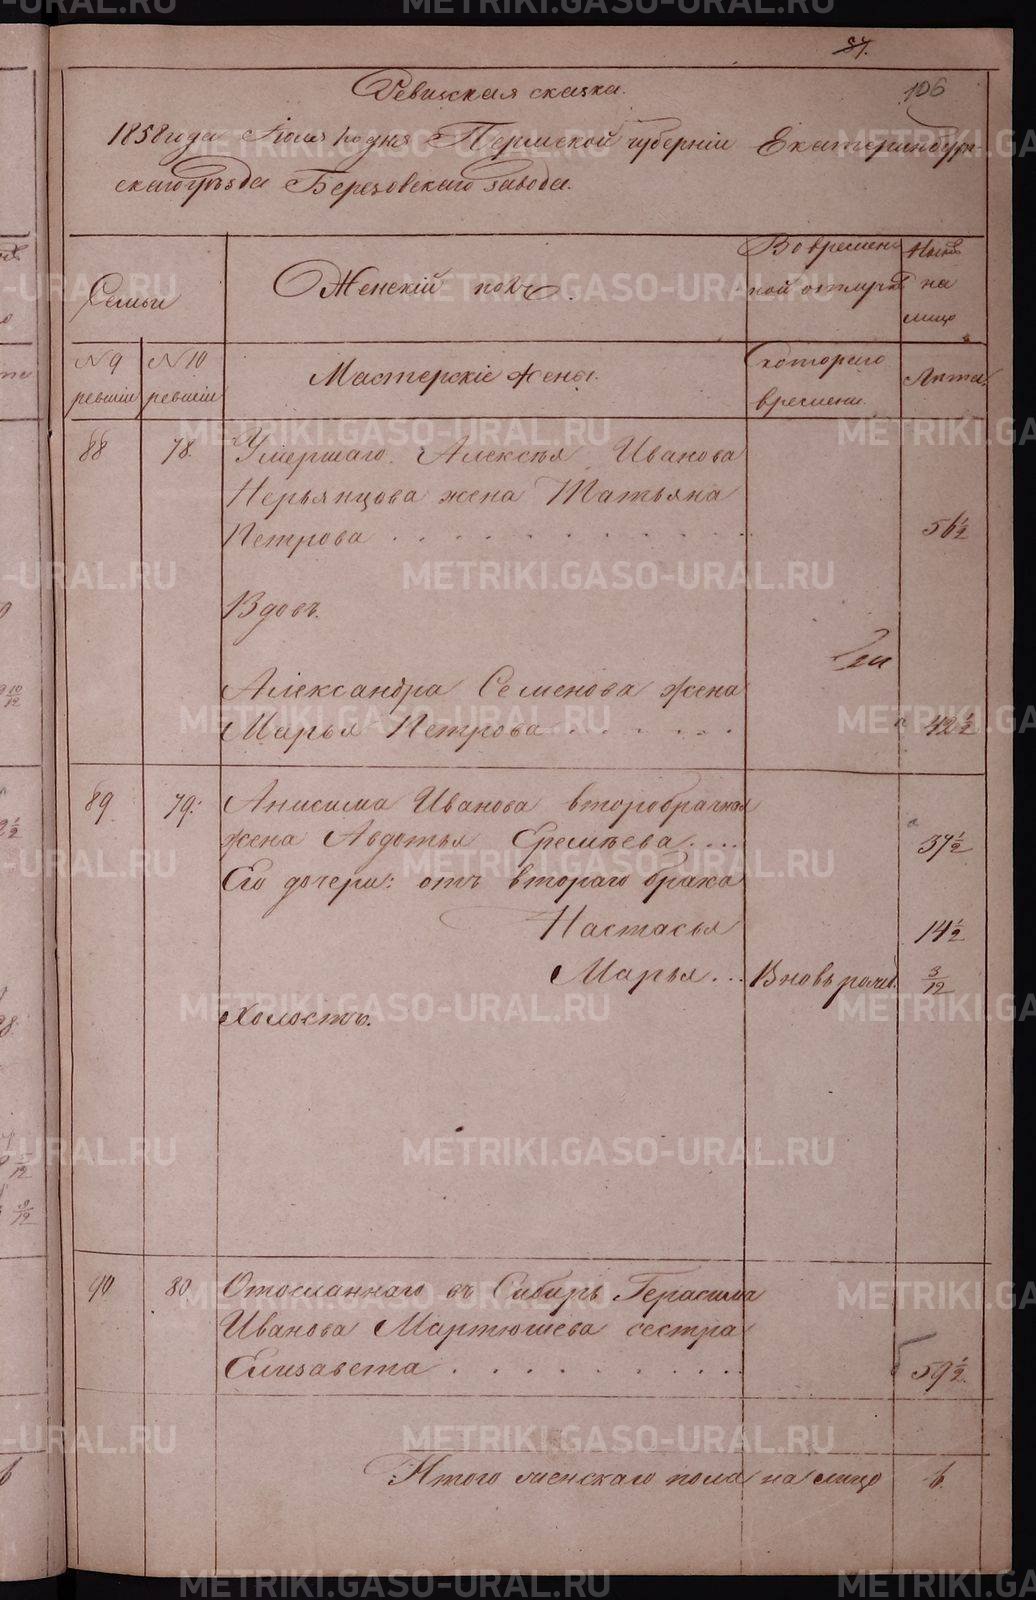 87.
106
Ревизская сказка.
1858 года Іюля 10 дня Пермской губерніи Екатеринбург-
скаго уѣзда Березовскаго завода.
Семьи
Женскій полъ.
Во времен-
ной отлучкѣ
Нынѣ
на
лицо
№ 9
ревизіи
№ 10
ревизіи
Мастерскіе жены.
Съ котораго
времени.
Лѣта.
88 78. Умершаго Алексѣя Иванова
Нерьянцова жена Татьяна
Петрова . . . . . . . . . . . . 56½
Вдовъ.
Александра Семенова жена
Марья Петрова . . . . . . . 42½
89 79. Анисима Иванова второбрачная
жена Авдотья Еремѣева . . . . 37½
Его дочери: отъ втораго брака
Настасья 14½
Марья . . . Вновь рожд. 3/12
Холостъ.
90 80 Отосланнаго въ Сибирь Герасима
Иванова Мартюшева сестра
Елизавета . . . . . . . . . . 59½.
Итого женскаго пола на лицо 6.
METRIKI.GASO-URAL.RU